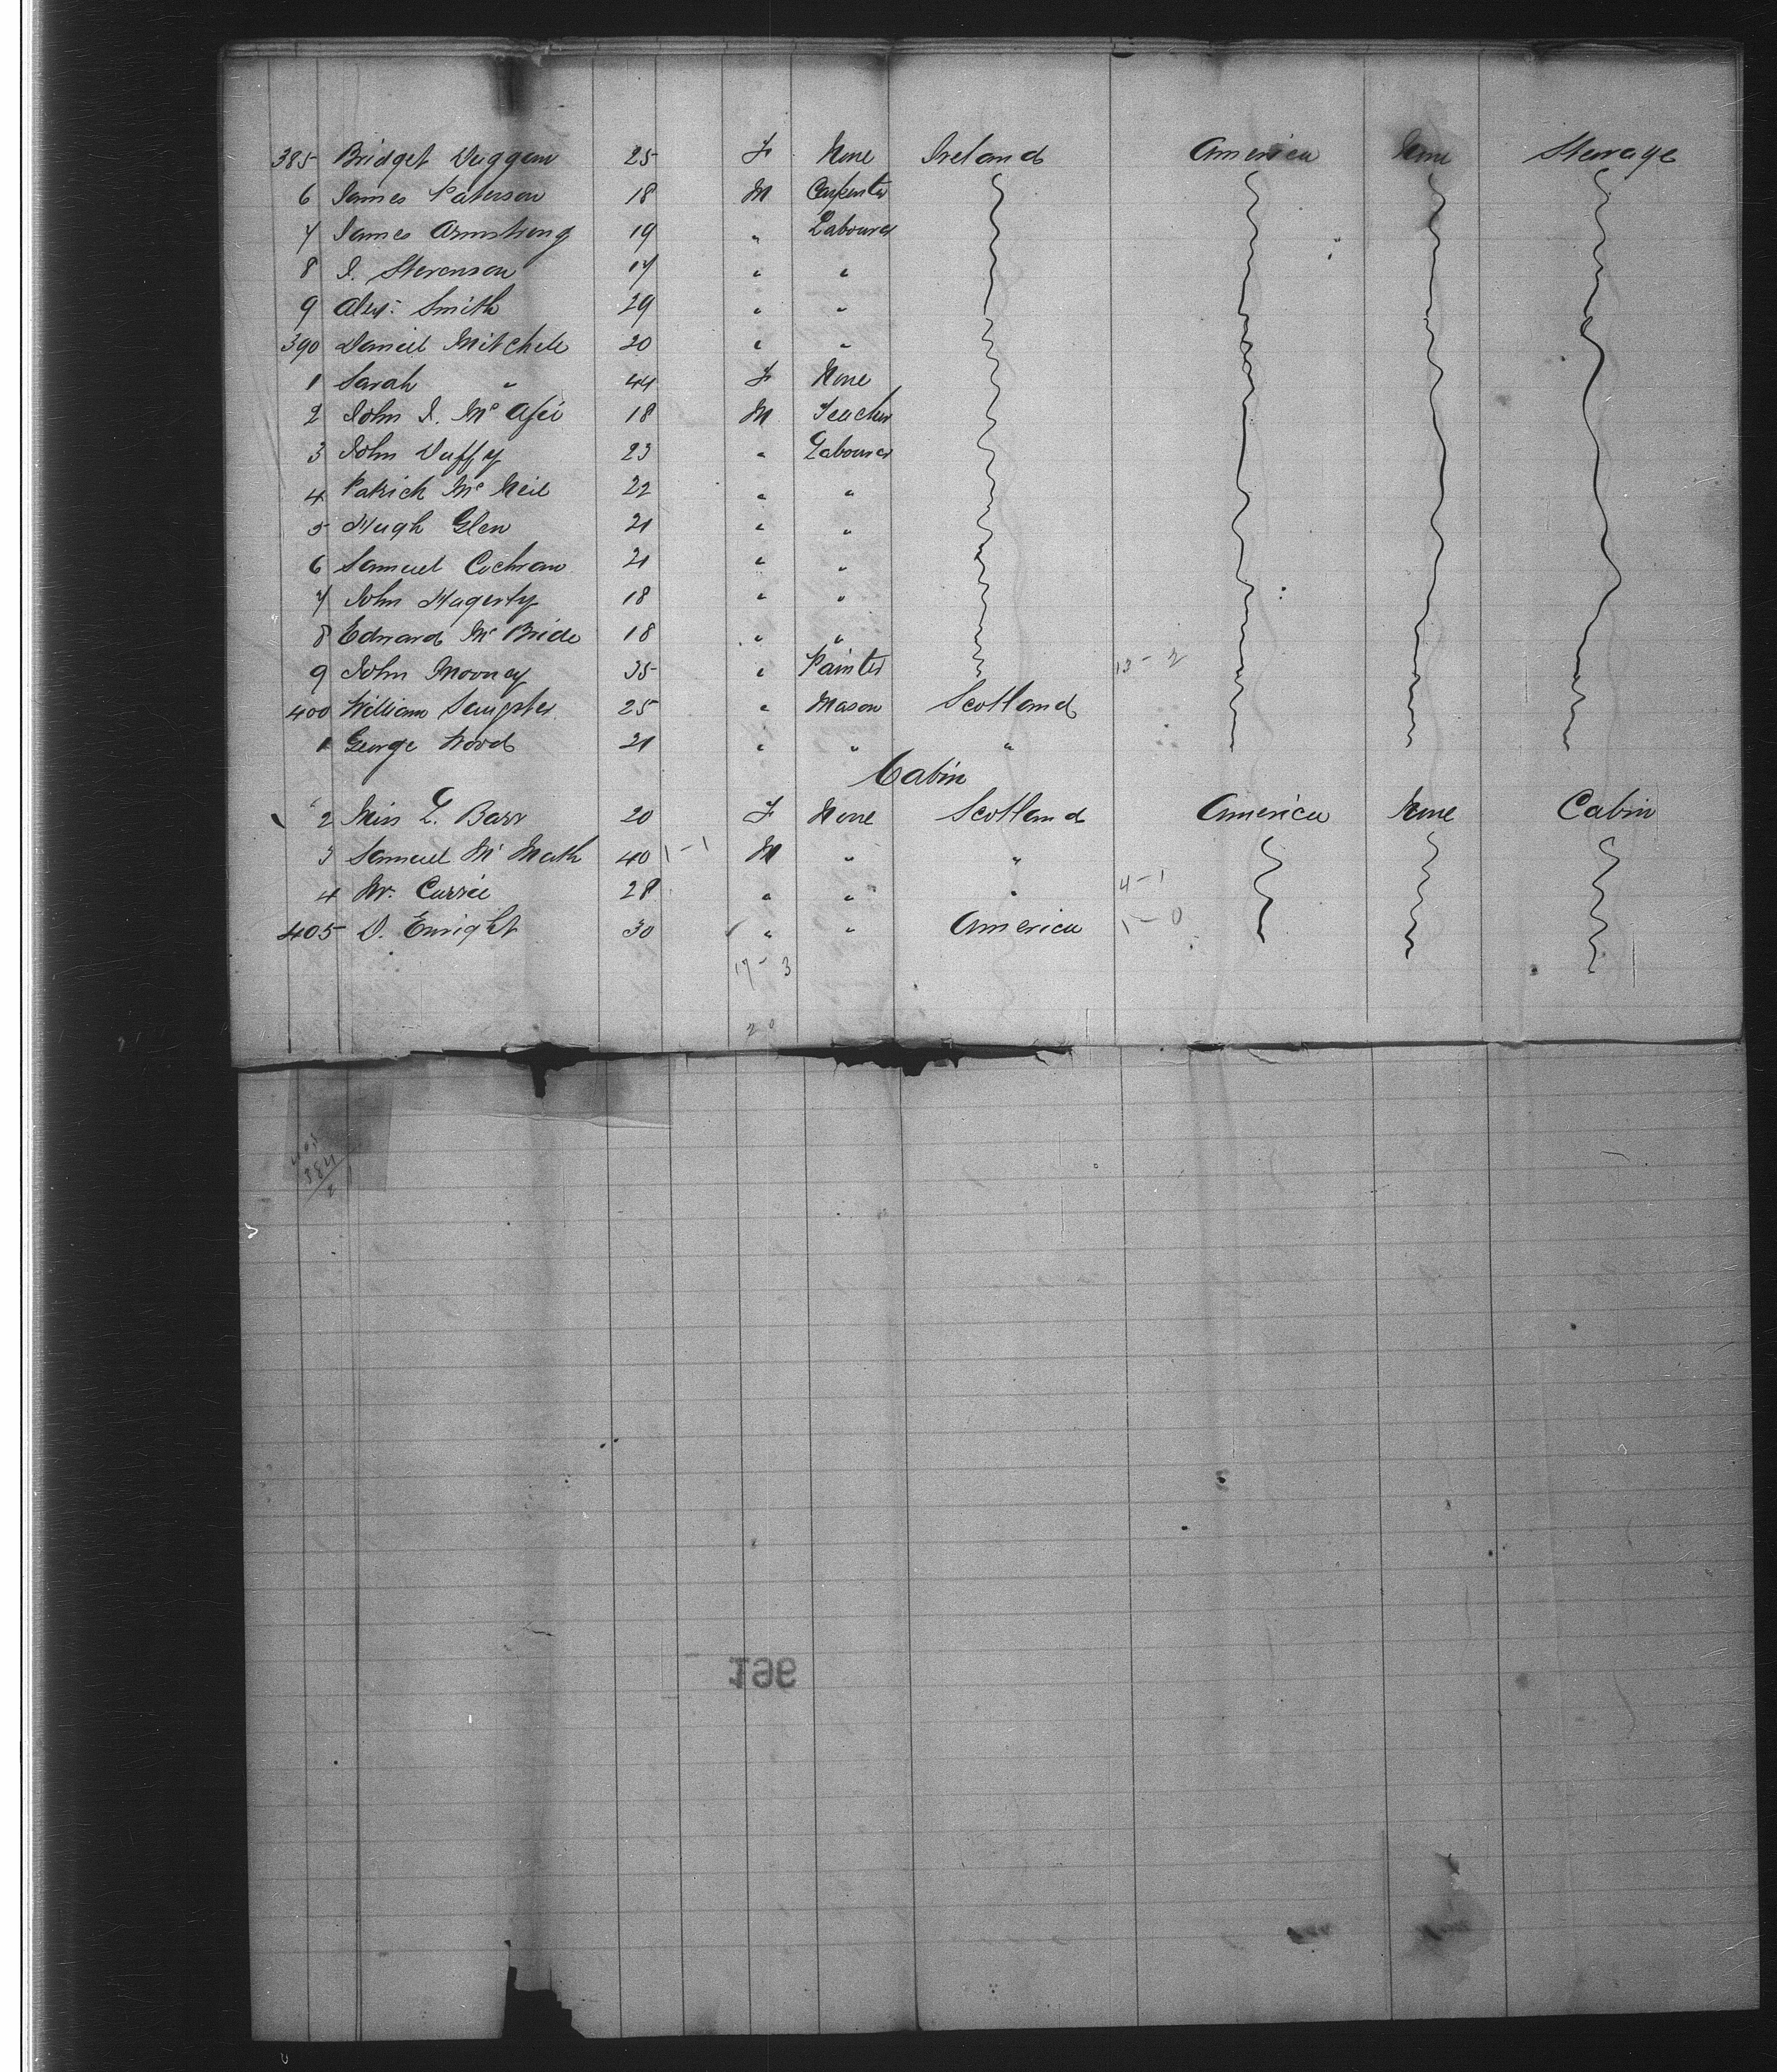 385 Bridget Duggan 25 F None Ireland America None Steerage
6 James Paterson 18 M Carpenter
7 James Armstrong 19 " Labourer
8 J. Stevenson 17 " "
9 Alex: Smith 29 " "
390 Daniel Mitchele 20 " "
1 Sarah " 44 F None
2 John J. Mc Afee 18 M Teacher
3 John Duffy 23 " Labourer
4 Patrick Mc Neil 22 " "
5 Hugh Glen 21 " "
6 Samuel Cochran 21 " "
7 John Hagerty 18 " "
8 Edward Mc Bride 18 " "
9 John Mooney 35 " Painter 13-2
400 William Sangster 25 " Mason Scotland
1 George Wood 21 " " "
Cabin
2 Miss L. Barr 20 F None Scotland America None Cabin
3 Samuel Mc Math 40 1-1 M " "
4 Mr. Currie 28 " " " 4-1
405 D. Enright 30 " " America 1-0
17-3
20
405
384
196